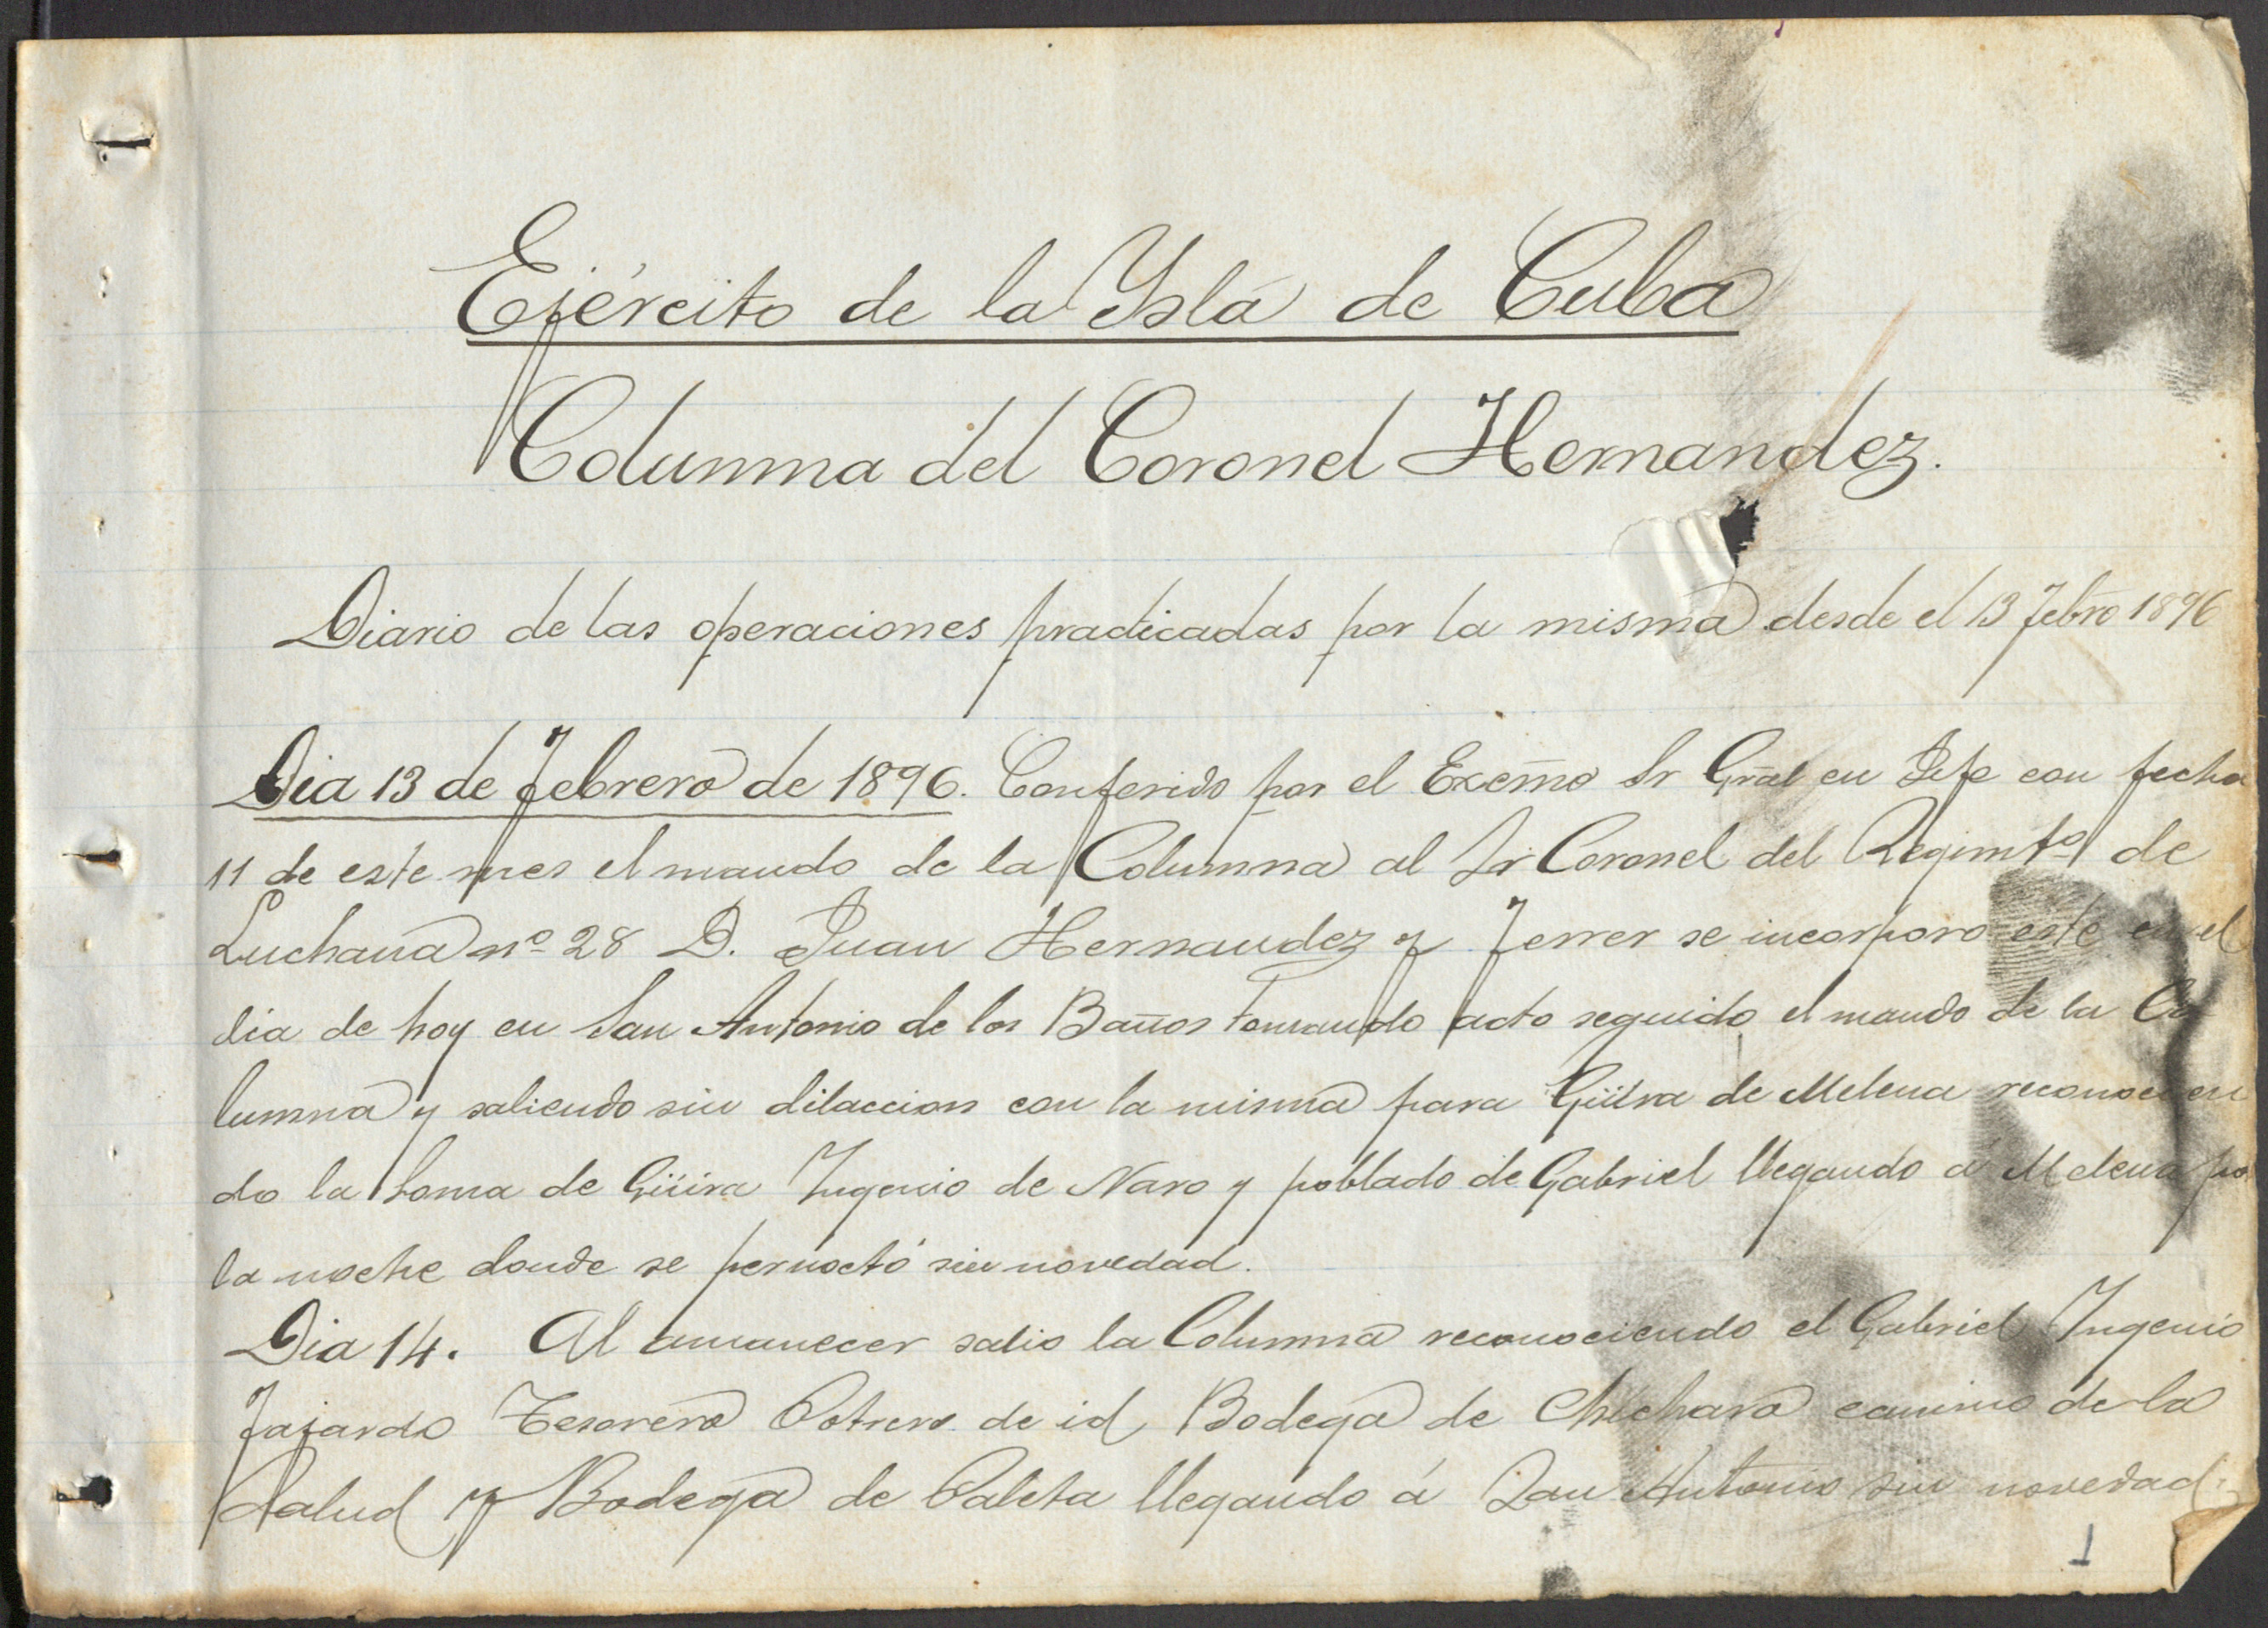 Ejército de la Ysla de Cuba
Columna del Coronel Hernandez.
Diario de las operaciones practicadas por la misma desde el 13 Febro 1896
Dia 13 de Febrero de 1896. Conferido por el Excmo Sr Gral en Jefe con fecha
11 de este mes el mando de la Columna al Sr Coronel del Regimto de
Luchana nº 28 D. Juan Hernandez y Ferrer se incorporo este en el
dia de hoy en San Antonio de los Baños tomando acto seguido el mando de la Co
lumna y saliendo sin dilaccion con la misma para Güira de Melena reconocien
do la Loma de Güira Ingenio de Naro y poblado de Gabriel llegando á Melena por
la noche donde se pernoctó sin novedad.
Dia 14. Al amanecer salio la Columna reconociendo el Gabriel Ingenio
Fajardo Tesorero Potrero de id Bodega de Chichara camino de la
Salud y Bodega de Caleta llegando á San Antonio sin novedad.
1